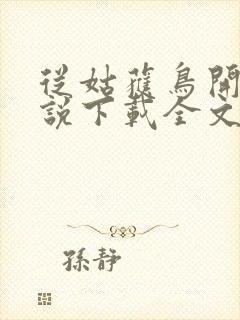 從姑獲鳥開
說下載全文
孫靜